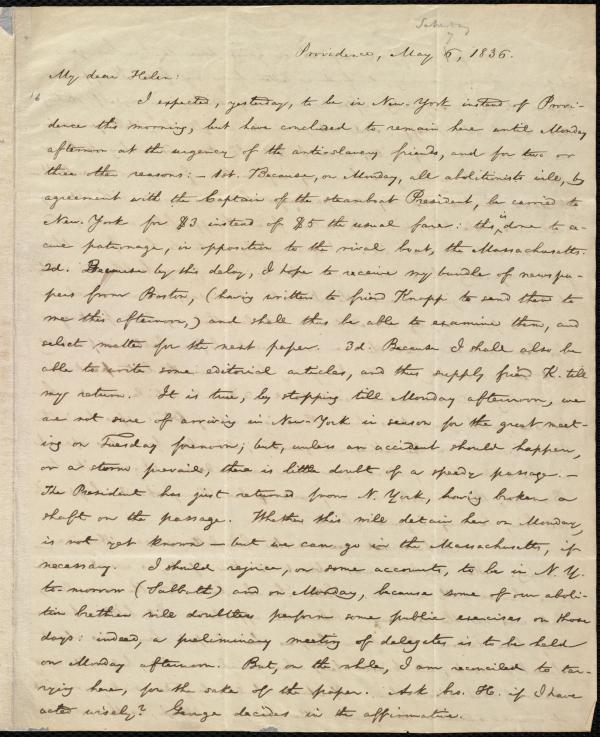 Saturday
7
Providence, May 6, 1836.
My dear Helen:
16
I expected, yesterday, to be in New-York instead of Provi-
dence this morning, but have concluded to remain here until Monday
afternoon at the urgency of the anti-slavery friends, and for two or
three other reasons:— 1st. Because, on Monday, all abolitionists will, by
agreement with the Captain of the steamboat President, be carried to
New-York for $3 instead of $5 the usual fare: this is done to se-
cure patronage, in opposition to the rival boat, the Massachusetts.
2d. Because by this delay, I hope to receive my bundle of newspa-
pers from Boston, (having written to friend Knapp to send them to
me this afternoon,) and shall thus be able to examine them, and
select matter for the next paper. 3d. Because I shall also be
able to write some editorial articles, and thus supply friend K. till
my return. It is true, by stopping till Monday afternoon, we
are not sure of arriving in New-York in season for the great meet-
ing on Tuesday forenoon; but, unless an accident should happen,
or a storm prevail, there is little doubt of a speedy passage.—
The President has just returned from N. York, having broken a
shaft on the passage. Whether this will detain her on Monday,
is not yet known — but we can go in the Massachusetts, if
necessary. I should rejoice, on some accounts, to be in N. Y.
to-morrow (Sabbath) and on Monday, because some of our aboli-
tion brethren will doubtless perform some public exercises on those
days: indeed, a preliminary meeting of delegates is to be held
on Monday afternoon. But, on the whole, I am reconciled to tar-
rying here, for the sake of the paper. Ask bro. H. if I have
acted wisely? George decides in the affirmative.